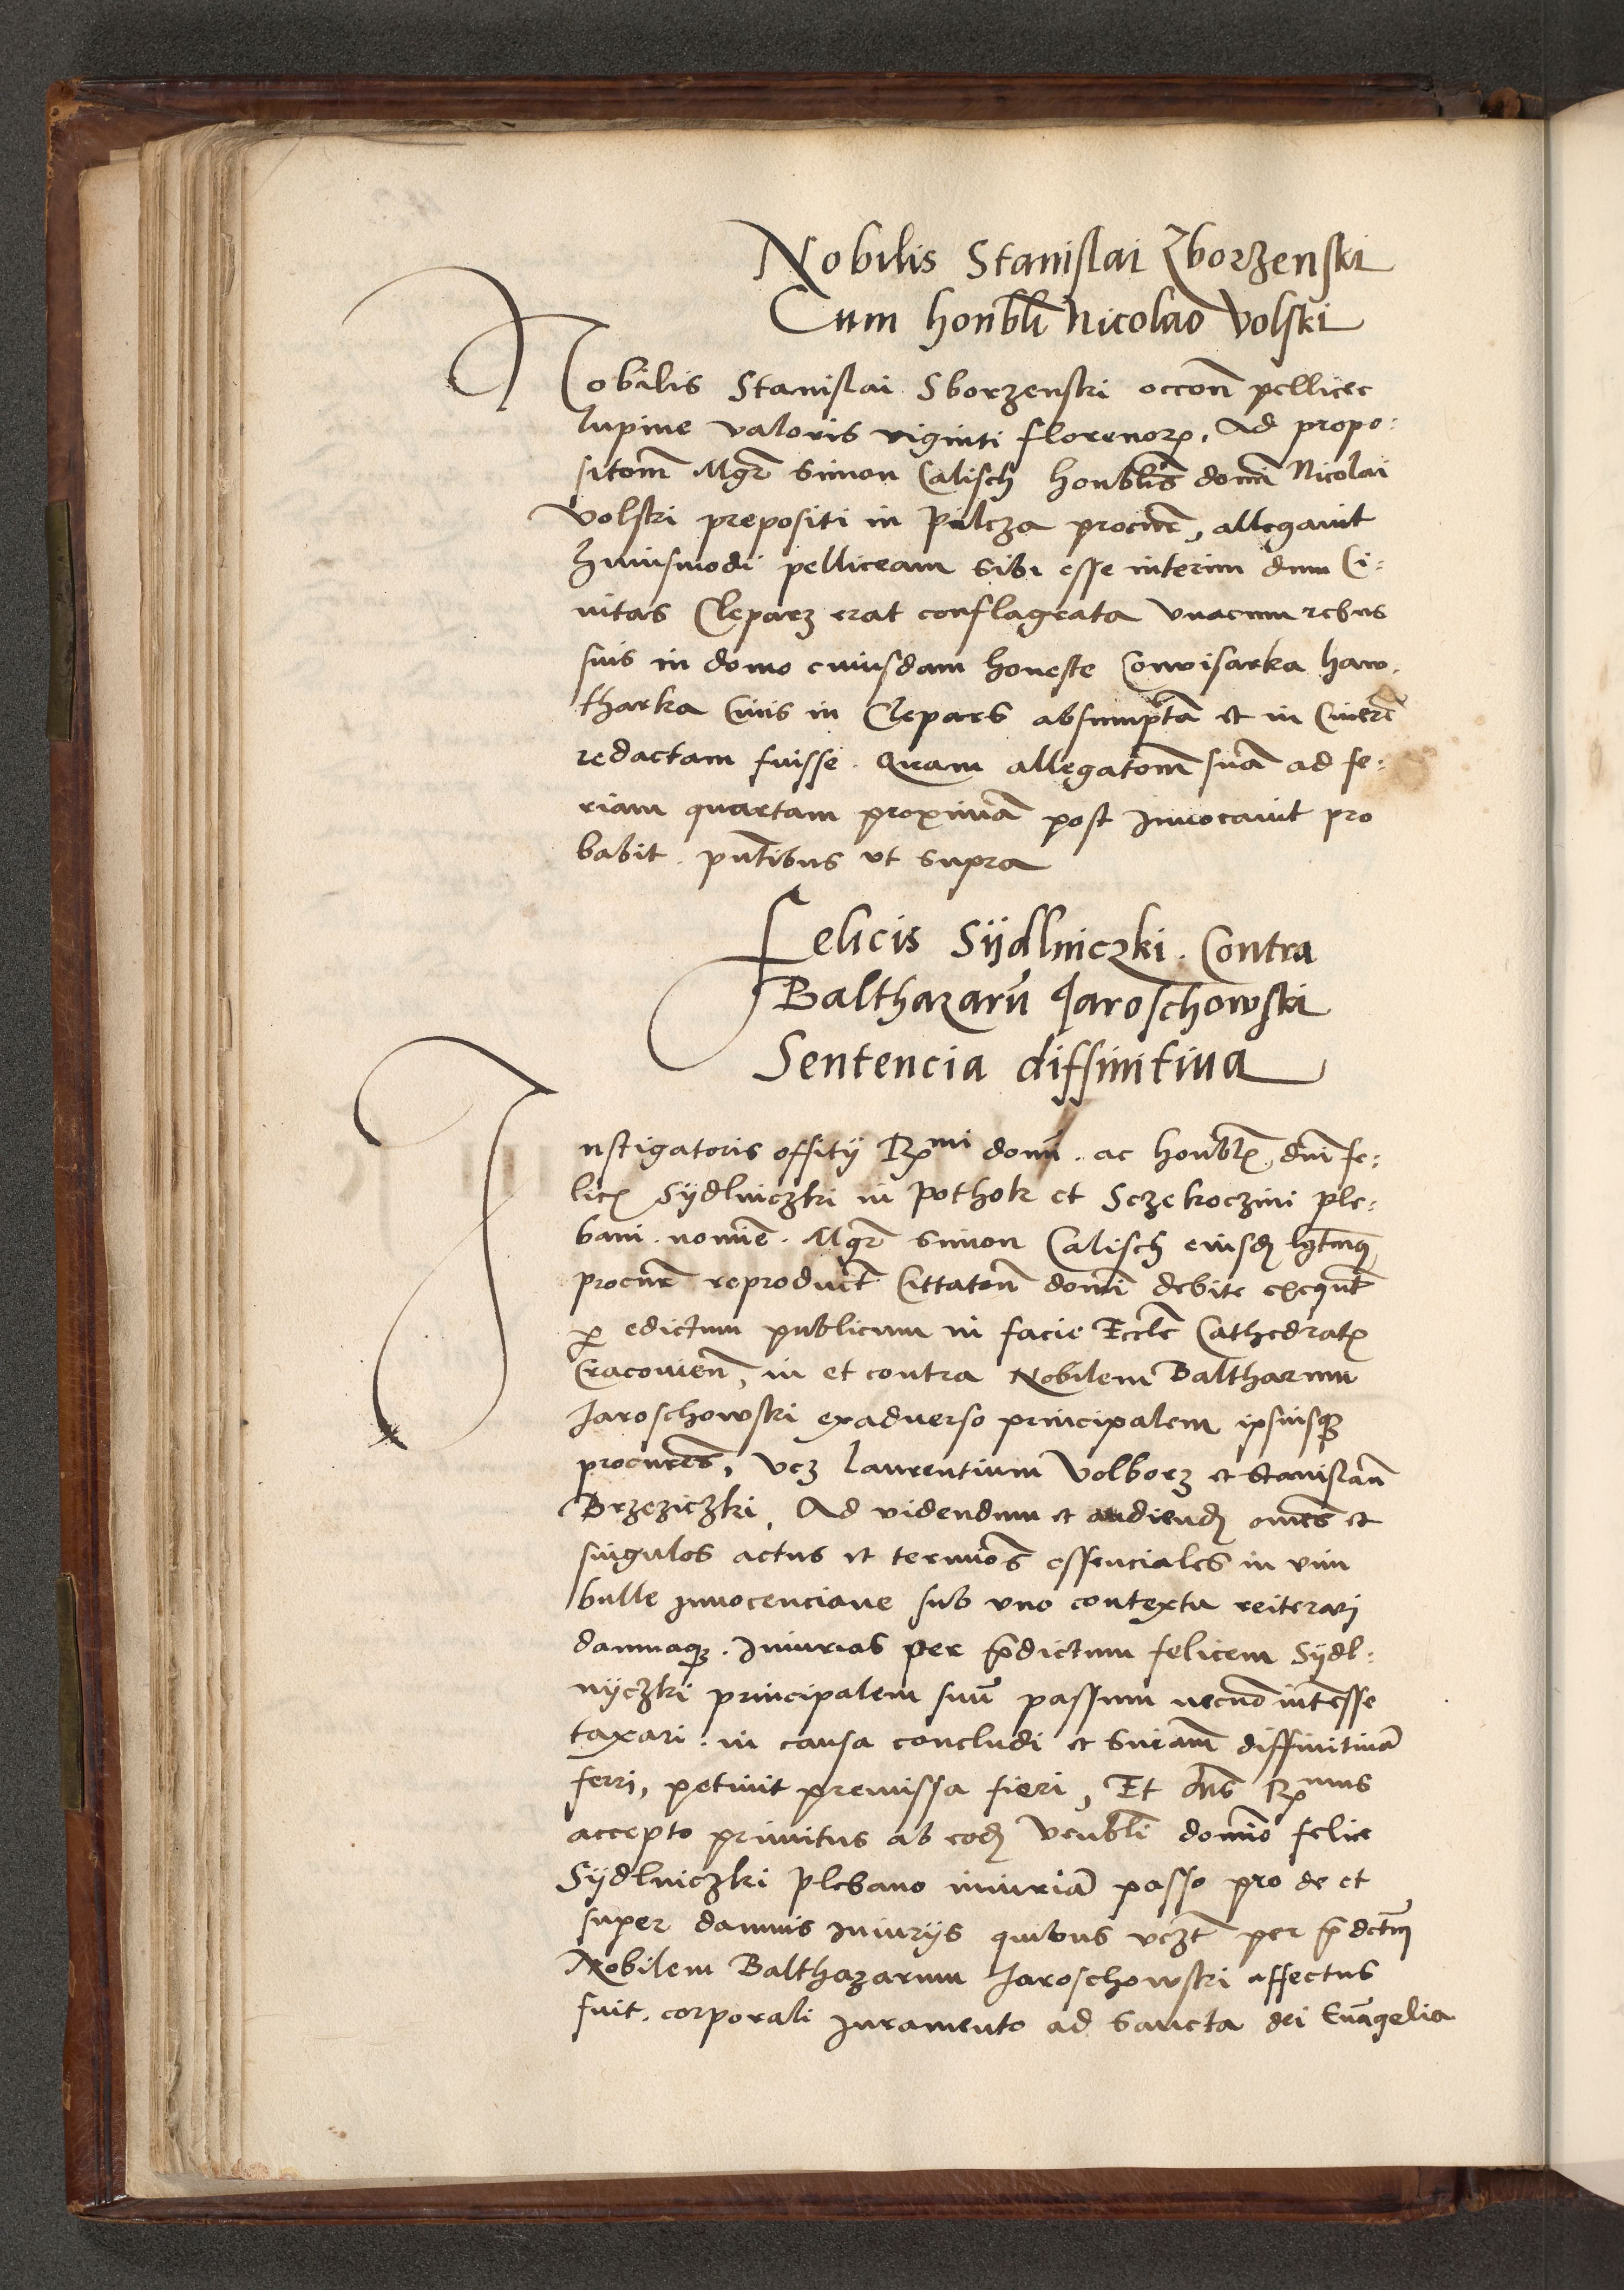 Nobilis Stanislai Zborzenski
Cum honbli Nicolao Volski
Nobilis Stanislai Sborzenski occoñ pellicee
lupine valoris viginti florenorꝝ, Ad propo:
sitom̃ Mgr̃ Simon Calisch honblis domi Nicolai
Volski prepositi in Pilcza procur̃, allegauit
huiusmodi pelliceam sibi esse interim dum Ci:
uitas Cleparz erat conflagrata vnacum rebus
suis in domo cuiusdam honeste Conwisarka haw,
tharka Ciuis in Clepars absumptã et in Cinerẽ
redactam fuisse. Quam allegatom̃ suã ad fe:
riam quartam proximã post Inuocauit pro
babit. pñtibus vt supra
Felicis Sÿdlniczki. Contra
Balthazarũ Jaroschowski
Sentencia diffinitiua
Instigatoris offitÿ Rꝫᵐⁱ domĩ. ac honblꝭ dñi Fe:
licꝭ Sÿdlniczki in Pothok et Sczekoczini ple:
bani. nomiẽ. Mgr̃ Simon Calisch eiusdꝫ lgtmꝰ
procur̃ reproduct̃ Cittatoñ domi debite exequut̃
ꝑ edictum publicum in facie Eccle Cathedralꝭ
Cracouieñ, in et contra Nobilem Baltharum
Jaroschowski exaduerso principalem ipsiusqꝫ
procures, vcz Laurentium Volborz et Stanislaũ
Brzeziczki, Ad videndum et audiendꝫ omes et
singulos actus et termios essenciales in vim
bulle Innocenciane sub vno contextu reiterari
damnaqꝫ. Iniurias per p̃dictum felicem Sÿdl:
nÿczki principalem suũ passum necnõ int̃esse
taxari. in causa concludi et Sniam̃ diffinitiuã
ferri, petiuit premissa fieri, Et dñs Rꝫᵐᵘˢ
accepto primitus ab eodꝫ Venbli domino felice
Sÿdlniczki Plebano iniuriã passo pro de et
super damnis Iniurÿs quibus vczt̃ per p̃dctm̃
Nobilem Balthazarum Jaroschowski affectus
fuit. corporali Iuramento ad Sancta dei Euãgelia